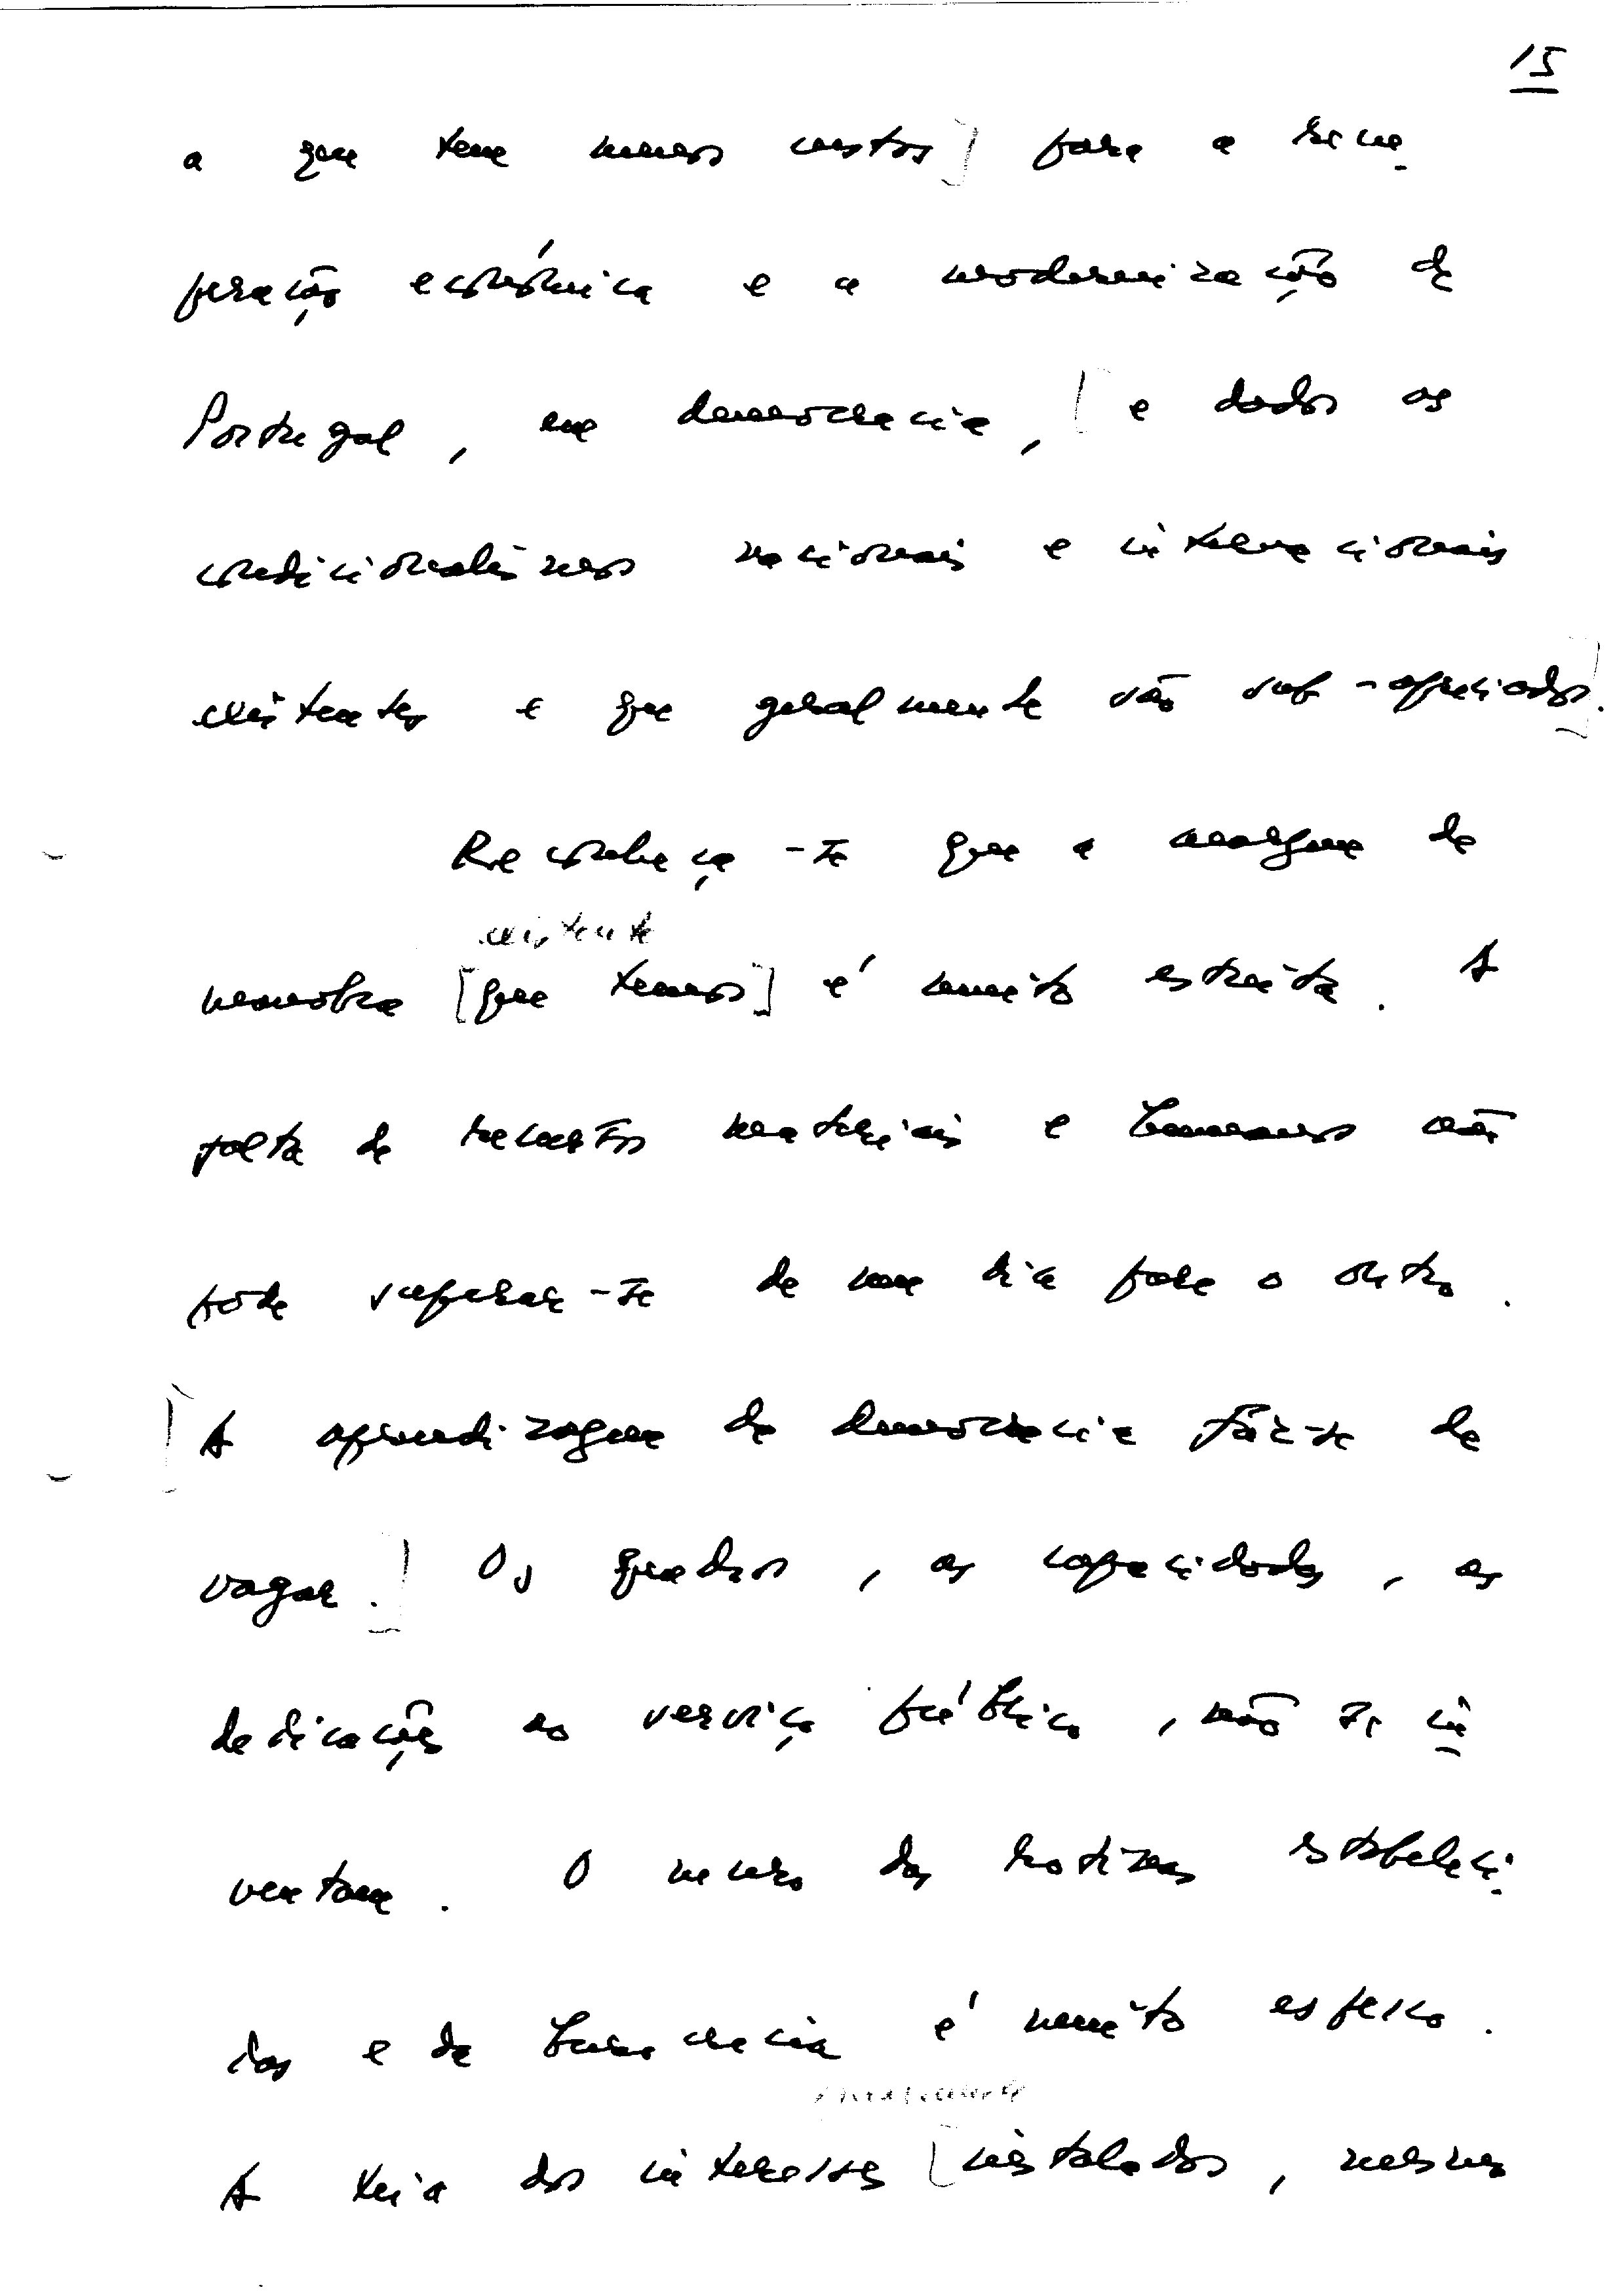 15
a que tem menos custos] para a recu-
peração económica e a modernização de
Portugal, em democracia, [e dados os
condicionalismos nacionais e internacionais
existentes e que geralmente são sub-apreciados].
Reconheça-se que a margem de
existente
manobra [que temos] é muito estreita. A
falta de recursos materiais e humanos não
pode superar-se de um dia para o outro.
[A aprendizagem da democracia faz-se de
vagar.] Os quadros, as capacidades, as
dedicações ao serviço público, não se in
ventam. O muro das rotinas estabeleci-
das e da burocracia é muito espesso.
A teia dos interesses [instalados, mesmo